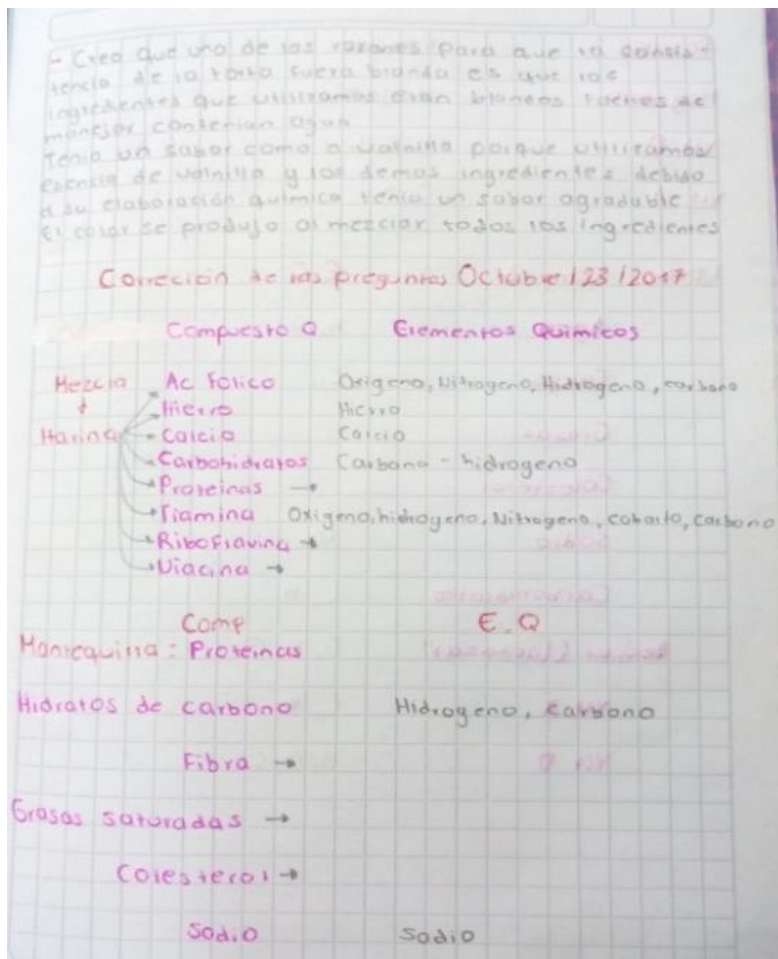 - Creo que una de las razones para que la consis-
tencia de la torta fuera blanda es que los
ingredientes que utilizamos eran blandos faciles de
manejar contenian agua
Tenia un sabor como a vainilla porque utilizamos
esencia de vainilla y los demas ingredientes debido
a su elaboración química tenia un sabor agradable
El color se produjo al mezclar todos los ingredientes
Correción de las preguntas Octubre / 23 / 2017
Compuesto Q Elementos Quimicos
Mezcla Ac Folico Oxigeno, Nitrogeno, Hidrogeno, carbono
Hierro Hierro
Harina Calcio Calcio
Carbohidratos Carbono - hidrogeno
Proteinas →
Tiamina Oxigeno, hidrogeno, Nitrogeno, cobalto, carbono
Riboflavina →
Niacina →
Comp E.Q
Mantequilla: Proteinas
Hidratos de carbono Hidrogeno, carbono
Fibra →
Grasas saturadas →
Colesterol →
Sodio Sodio